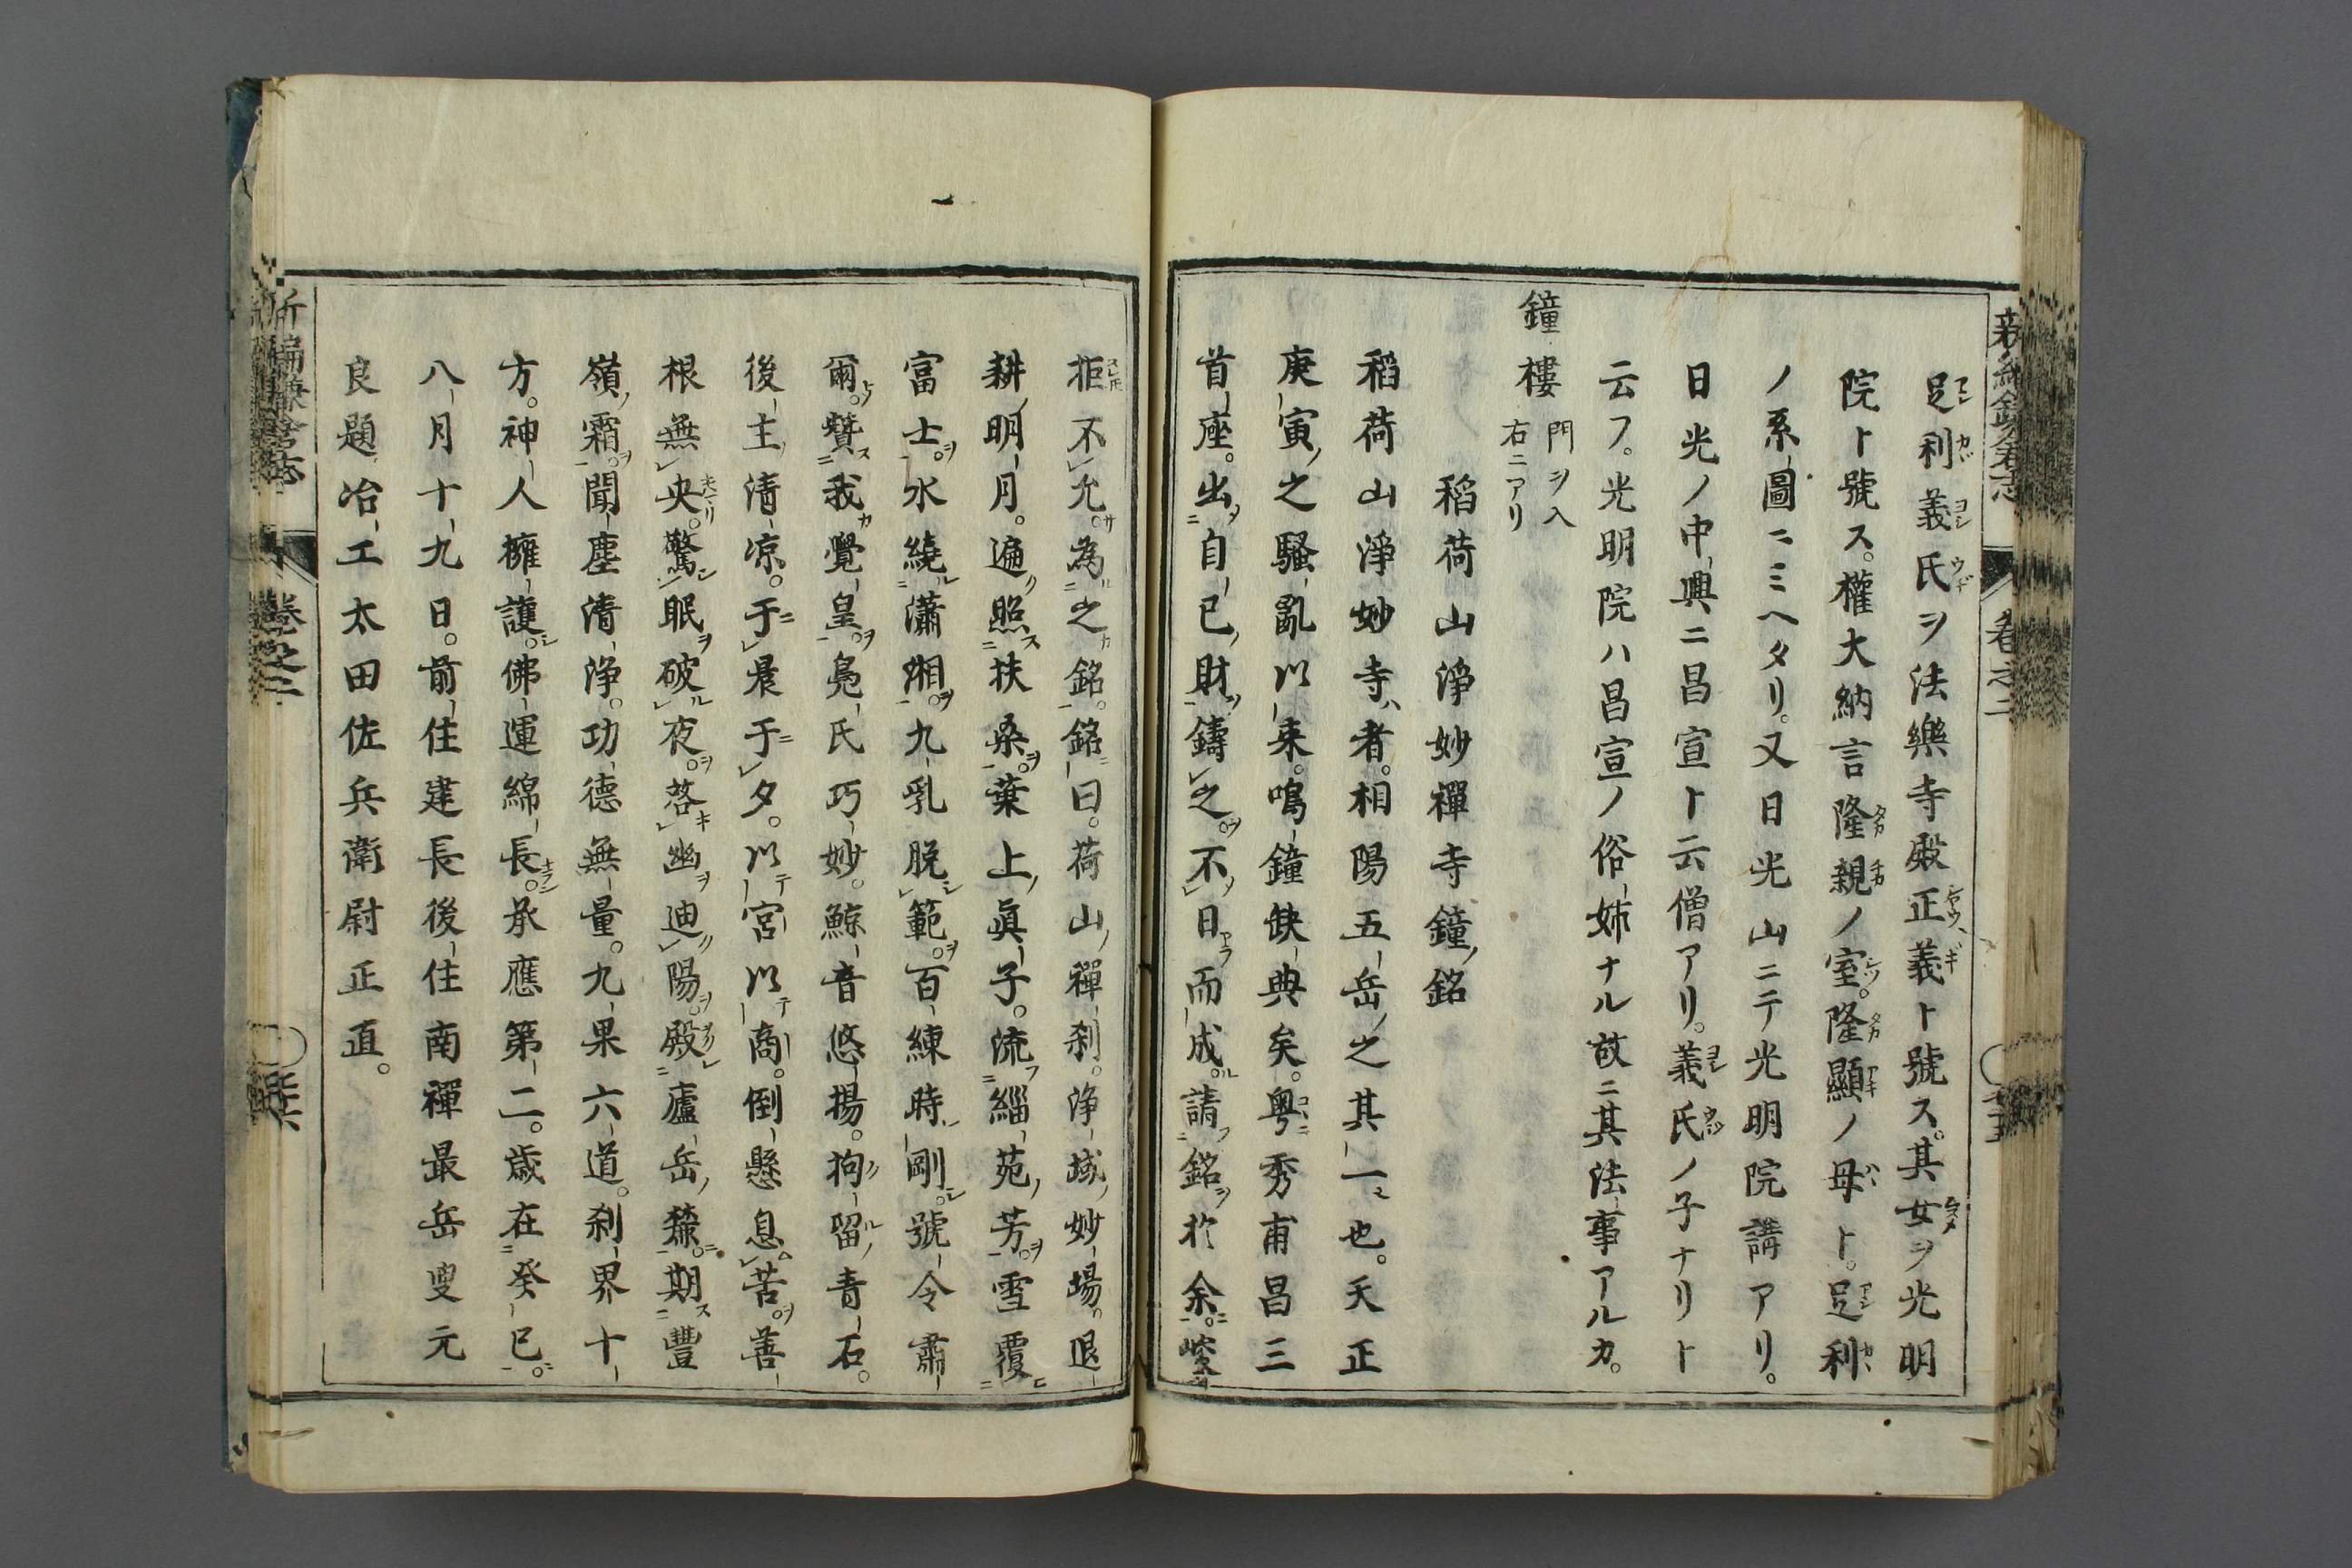 足利義氏ヲ法樂寺殿正義ト號ス。其女ヲ光明
院ト號ス。權大納言隆親ノ室。隆顯ノ母ト。足利
ノ系圖ニミヘタリ。又日光山ニテ光明院講アリ。
日光ノ中興ニ昌宣ト云僧アリ。義氏ノ子ナリト
云フ。光明院ハ昌宣ノ俗姉ナル故ニ其法事アルカ。
鐘樓 門ヲ入右ニアリ
稻荷山淨妙禪寺鐘ノ銘
稻荷山淨妙寺ハ者。相陽五岳ノ之其一也。天正
庚寅ノ之騷亂以來。鳴鐘缺典矣。粤秀甫昌三
首座。出自己ノ財鑄之。不日而成。請銘於余。
拒不允。為之銘。銘曰。荷山禪刹。淨域妙場。退
耕明月。遍照扶桑。葉上眞子。流緇苑芳。雪覆
富士。水繞瀟湘。九乳脫範。百練時剛。號令肅
爾。贊我覺皇。鳧氏巧妙。鯨音悠揚。拘留青石。
後主清凉。于晨于夕。以宮以商。倒懸息苦。善
根無央。驚眠破夜。啓幽迪陽。殿廬岳猋。期豐
嶺霜。聞塵清淨。功德無量。九果六道。刹界十
方。神人擁護。佛運綿長。承應第二。歲在癸巳。
八月十九日。前住建長後住南禪最岳叟元
良題冶工太田佐兵衛尉正直。
新編鎌倉志 卷之二